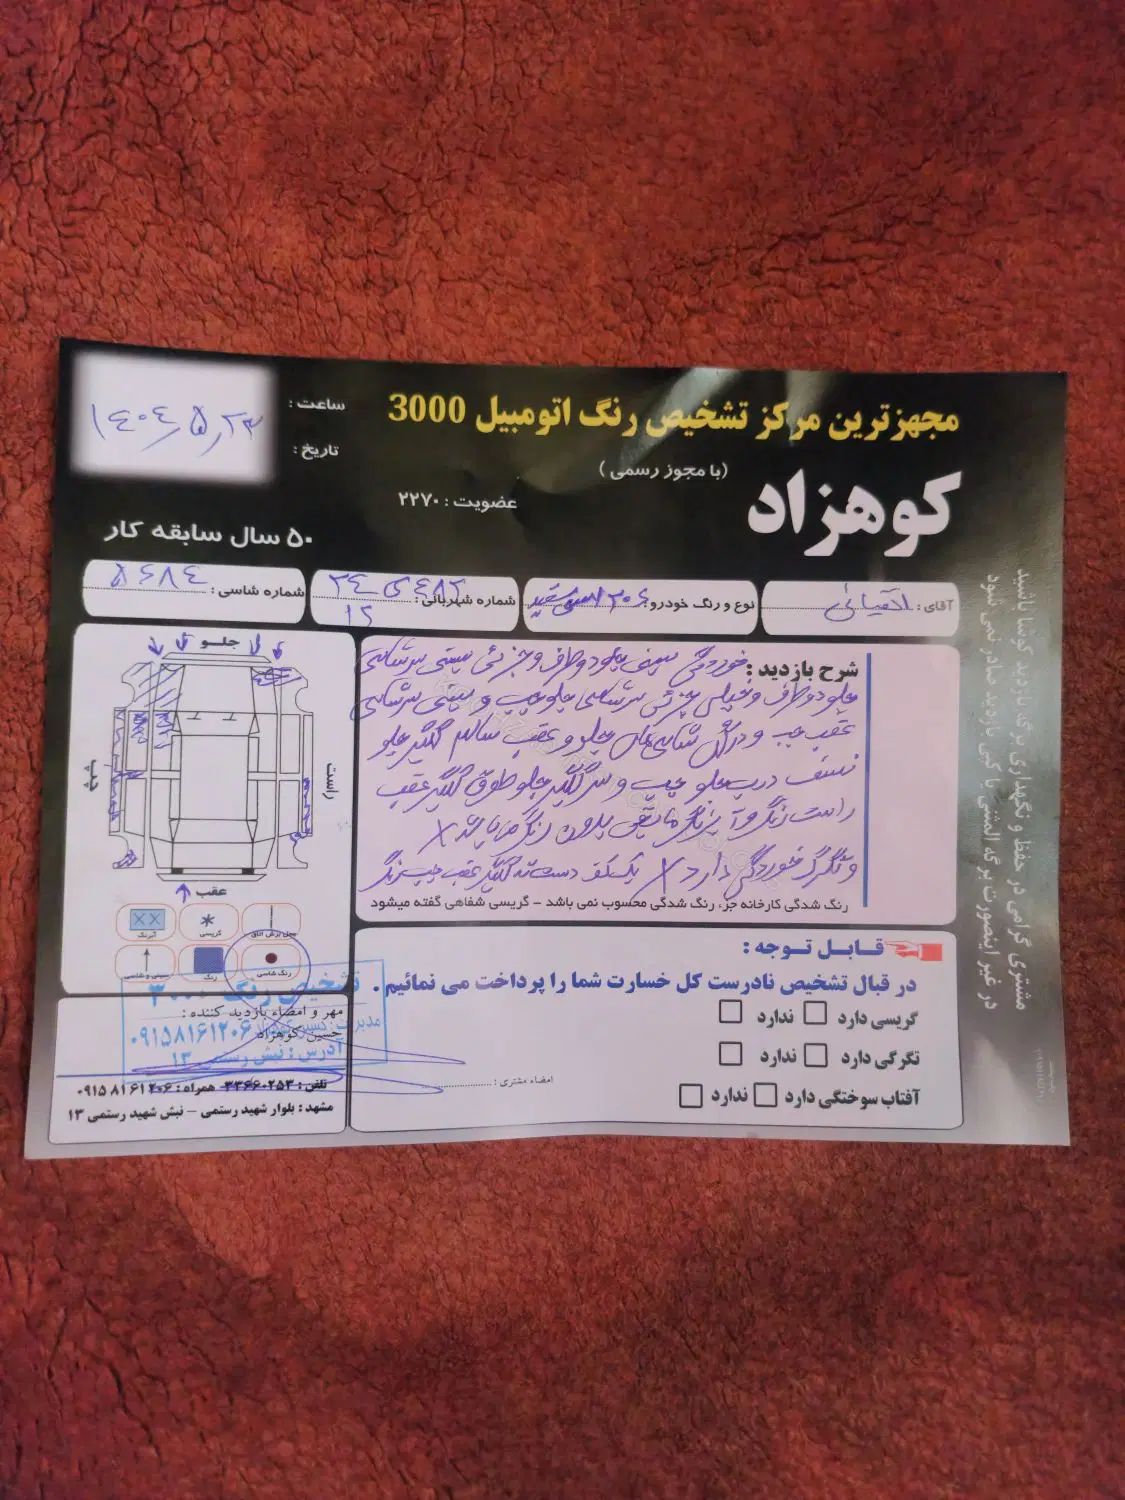 مجهزترین مرکز تشخیص رنگ اتومبیل 3000
(با مجوز رسمی)
کوهزاد
عضویت : ۲۲۷۰
۵۰ سال سابقه کار
ساعت :
تاریخ :
۱۴۰۴٫۵٫۲۳
آقای :
نوع و رنگ خودرو : ۲۰۶ سفید
شماره شهربانی : ۳۴ ۴۸۲
۱۲
شماره شاسی : ۵۶۸۴
شرح بازدید : خوردگی سینی جلو دو طرف و جزئی سینی سرشاسی
جلو دو طرف و خیلی جزئی سرشاسی جلو چپ و سینی سرشاسی
عقب چپ و شاسی‌های جلو و عقب سالم گلگیر جلو
نصف درب جلو چپ و گلگیر جلو گلگیر عقب
راست رنگ و آبرنگ مابقی بدون رنگ میباشد X
و تگرگ خوردگی دارد X یک کف دست ته گلگیر عقب چپ رنگ
رنگ شدگی کارخانه جز، رنگ شدگی محسوب نمی باشد – گریسی شفاهی گفته میشود
جلو
راست
چپ
عقب
آبرنگ
گریسی
محل برش اتاق
سینی و شاسی
رنگ
رنگ شاسی
قابل توجه :
در قبال تشخیص نادرست کل خسارت شما را پرداخت می نمائیم .
گریسی دارد ندارد
تگرگی دارد ندارد
آفتاب سوختگی دارد ندارد
امضاء مشتری :
مهر و امضاء بازدید کننده :
حسین کوهزاد
تلفن : ۳۳۶۶۰۲۵۳ همراه : ۰۹۱۵۸۱۶۱۲۰۶
مشهد : بلوار شهید رستمی – نبش شهید رستمی ۱۳
تشخیص رنگ ۳۰۰۰
۰۹۱۵۸۱۶۱۲۰۶
آدرس : نبش رستمی ۱۳
مشتری گرامی در حفظ و نگهداری برگه بازدید کوشا باشید
در غیر اینصورت برگه المثنی یا کپی بازدید صادر نمی شود